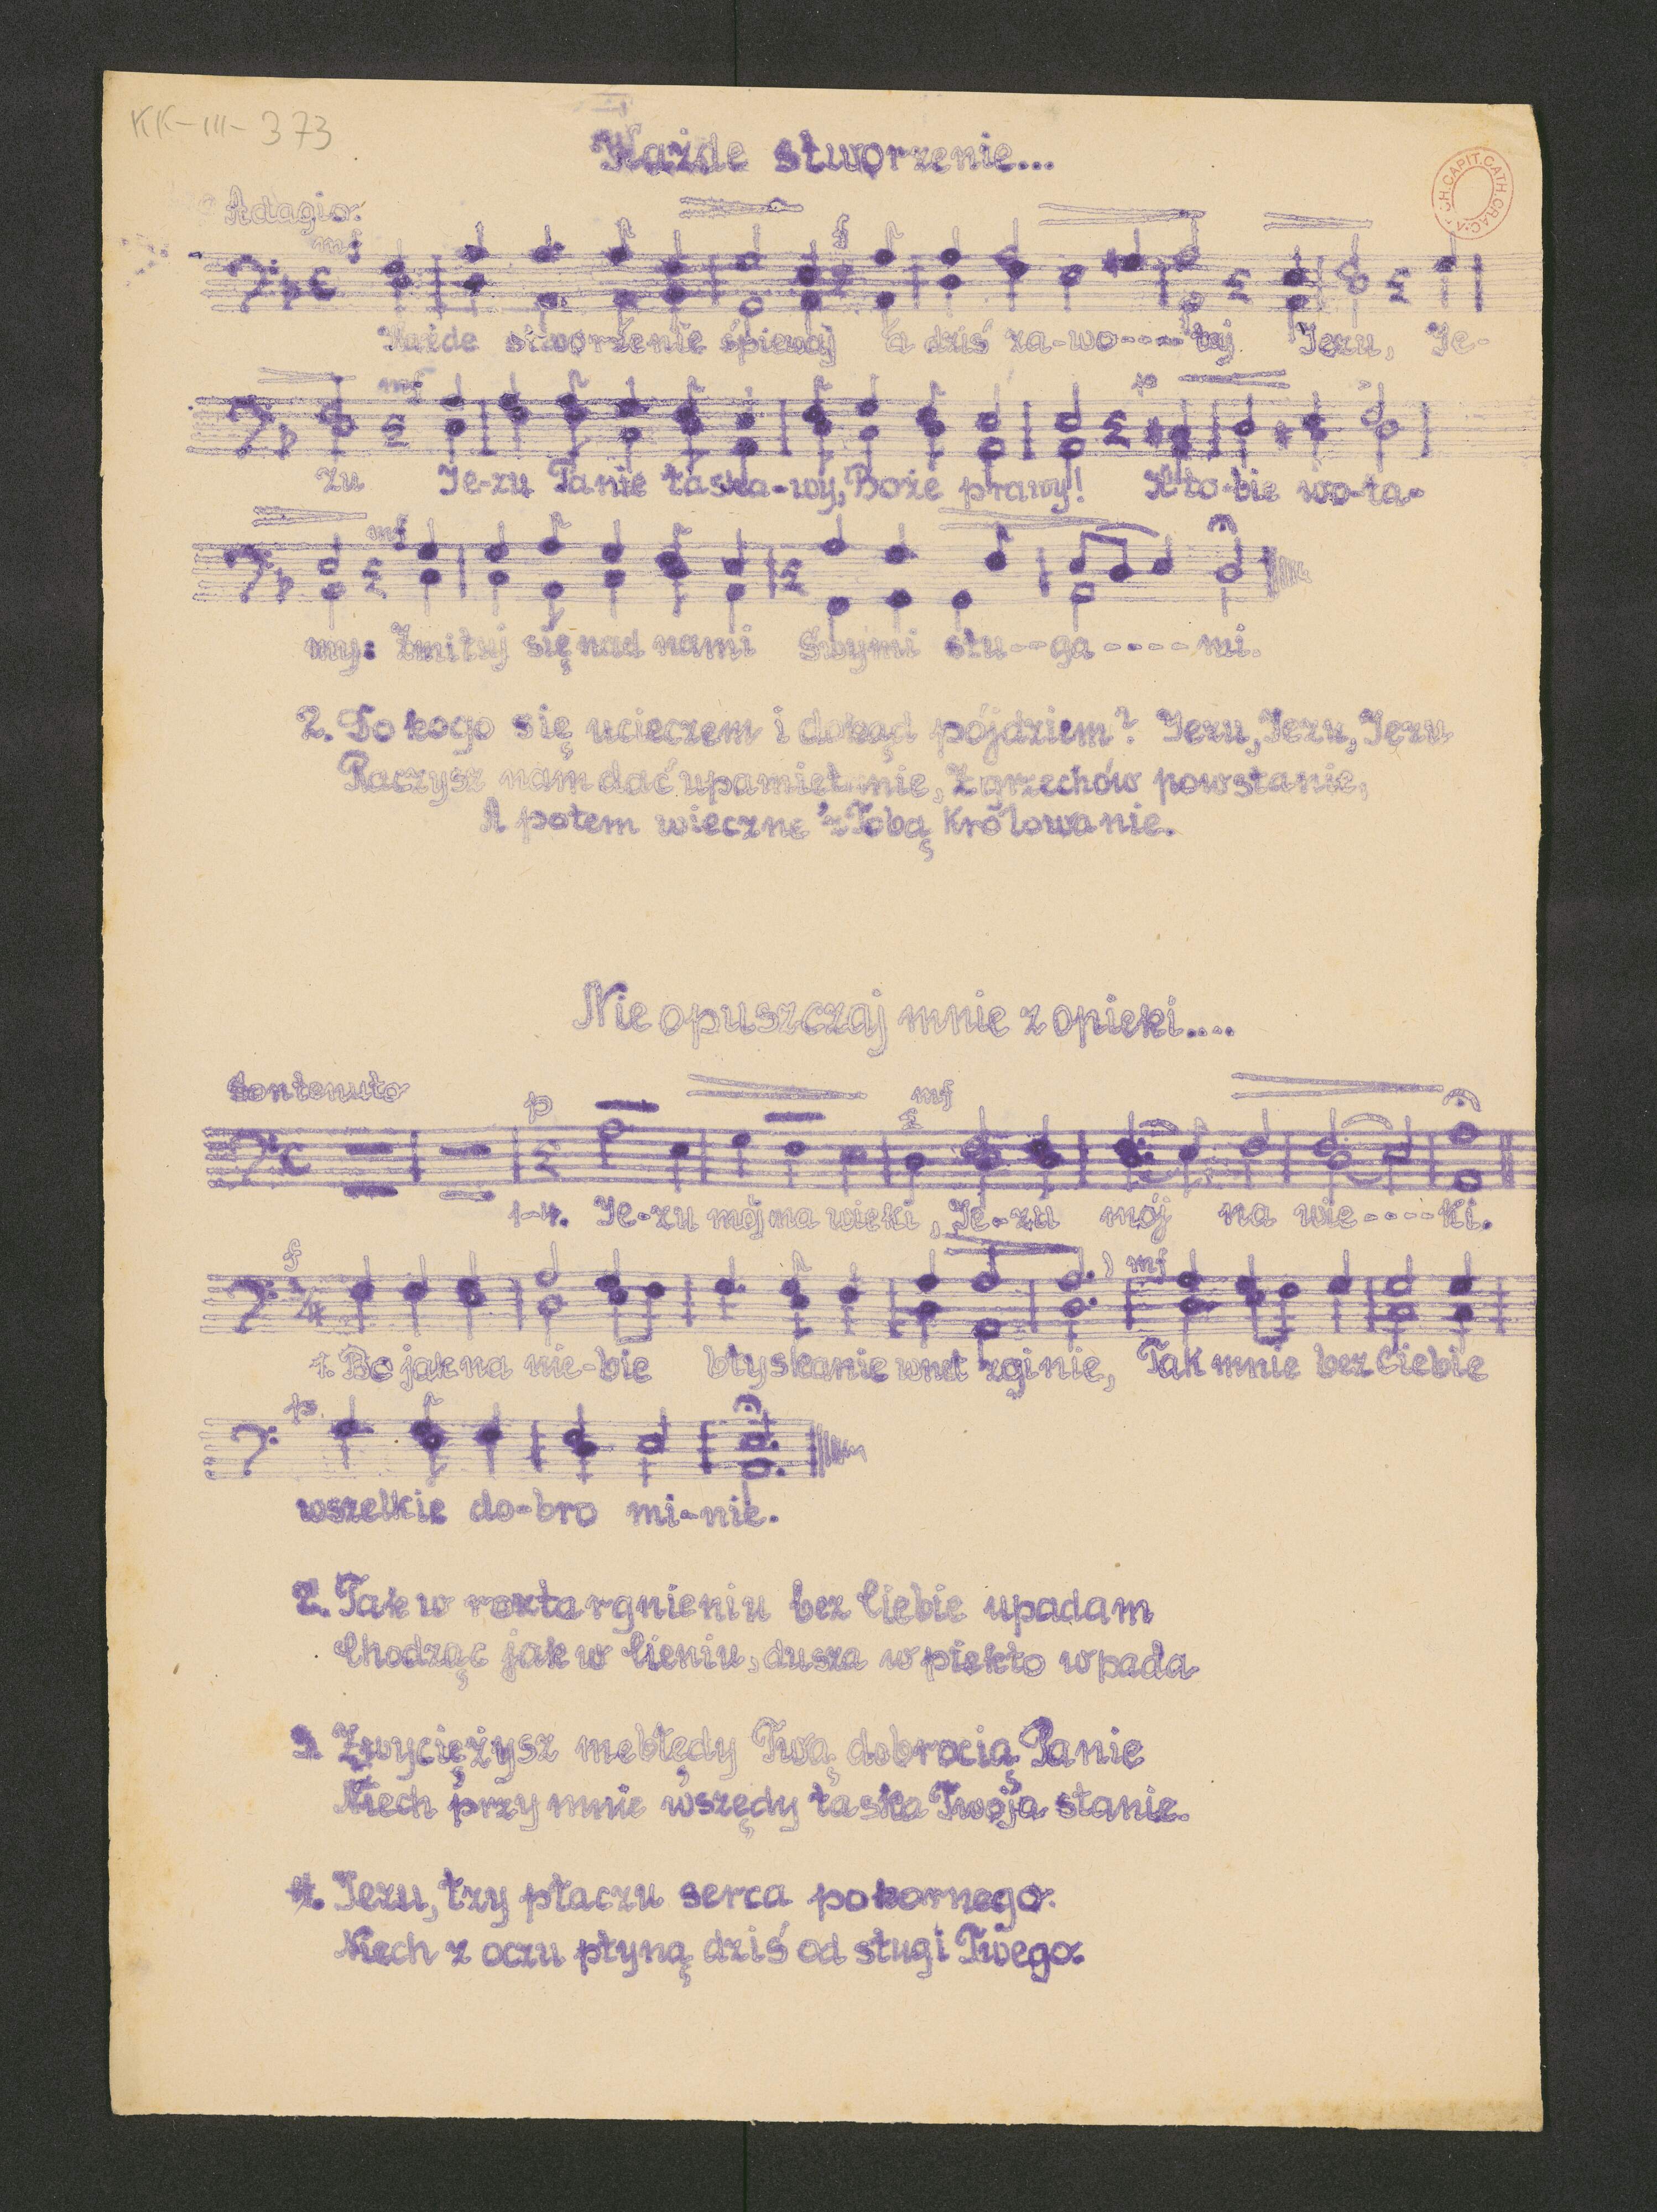 KK-III-373
Każde stworzenie...
ARCH. CAPIT. CATH. CRAC.
Adagio.
mf f
Każde stworzenie śpiewaj a dziś za-wo----łaj Jezu, Je-
mf p
zu Je-zu Panie łaska-wy, Boże prawy! K'to-bie wo-ła-
mf
my: Zmiłuj się nad nami Swymi słu--ga----mi.
2. Do kogo się ucieczem i dokąd pójdziem? Jezu, Jezu, Jezu
Raczysz nam dać upamiętanie, Z grzechów powstanie,
A potem wieczne z Tobą Królowanie.
Nie opuszczaj mnie z opieki....
Sontenuto
p mf
1-4. Je-zu mój na wieki, Je-zu mój na wie----ki.
f mf
1. Bo jak na nie-bie błyskanie wnet zginie, Tak mnie bez Ciebie
p
wszelkie do-bro mi-nie.
2. Tak w roztargnieniu bez Ciebie upadam
Chodząc jak w Cieniu, dusza w piekło wpada
3. Zwyciężysz me błędy Twą dobrocią Panie
Niech przy mnie wszędy łaska Twoja stanie.
4. Jezu, łzy płaczu serca pokornego.
Niech z oczu płyną dziś od sługi Twego.